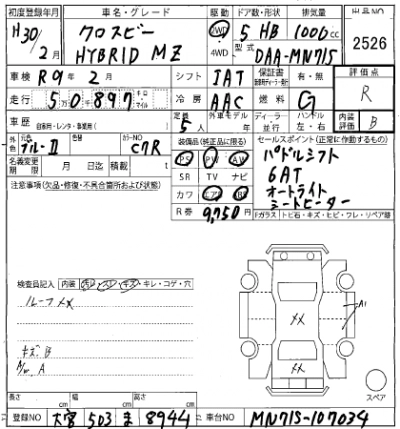 初度登録年月 車名・グレード 駆動 ドア数・形状 排気量 出品NO
H30/2月 クロスビー HYBRID MZ 2WD 4WD 5 HB 1000cc 2526
型式 DAA-MN71S
車検 R9年2月 シフト IAT 保証書 有・無 評価点 R
走行 50,897 キロ マイル 冷房 AAC 燃料 G
車歴 自家用・レンタ・事業用( ) 定員 5人 外車モデル年 ディーラー 並行 ハンドル 左・右 内装評価 B
外色 ブルーII 色替 カラーNO C7R 装備品(純正品に限る) セールスポイント(正常に作動するもの)
名義変更期限 月 日迄 積載 t PS PW AW パドルシフト
注意事項(欠品・修復・不具合箇所および状態) SR TV ナビ 6AT
カワ エアB オートライト
R券 9,750円 シートヒーター
Fガラス トビ石・キズ・ヒビ・フレ・リペア跡
検査員記入 内装 キレ・コゲ・穴
ルーフ メメ
A1
メメ
キズB
A/W A
メメ
スペア
長さ cm 幅 cm 高さ cm
登録NO 大宮 503 ま 8944 車台NO MN71S-107034